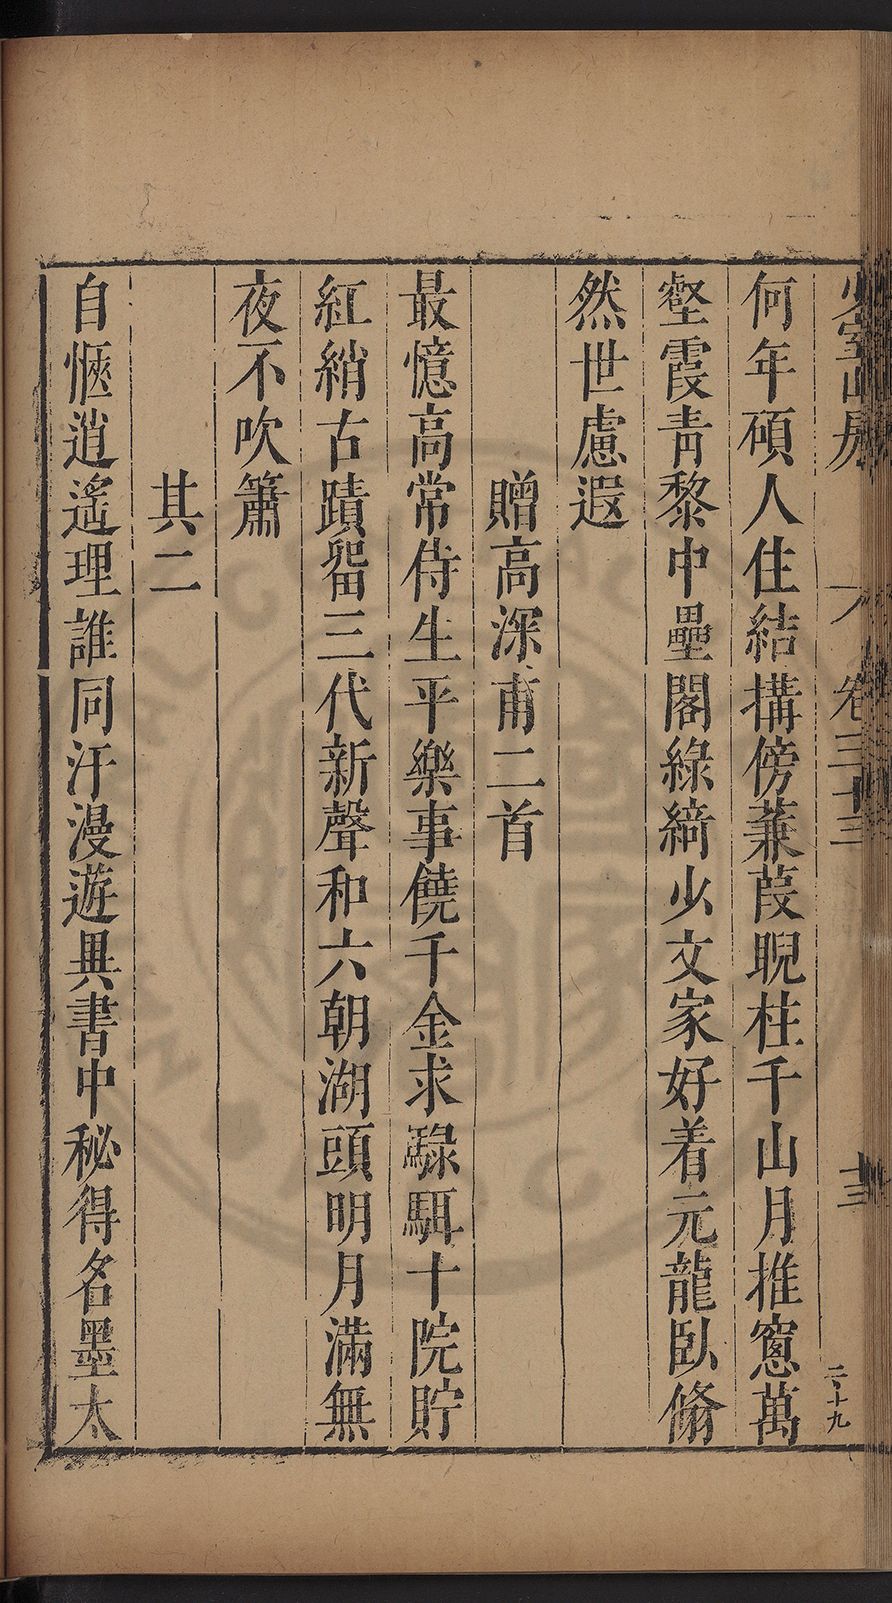 少室山房 卷三十三 十三 二十九
何年碩人住結搆傍蒹葭睨柱千山月推窻萬
壑霞青黎中壘閣綠綺少文家好着元龍臥翛
然世慮遐
贈高深甫二首
最憶高常侍生平樂事饒千金求騄駬十院貯
紅綃古蹟畱三代新聲和六朝湖頭明月滿無
夜不吹簫
其二
自愜逍遙理誰同汗漫遊異書中秘得名墨太